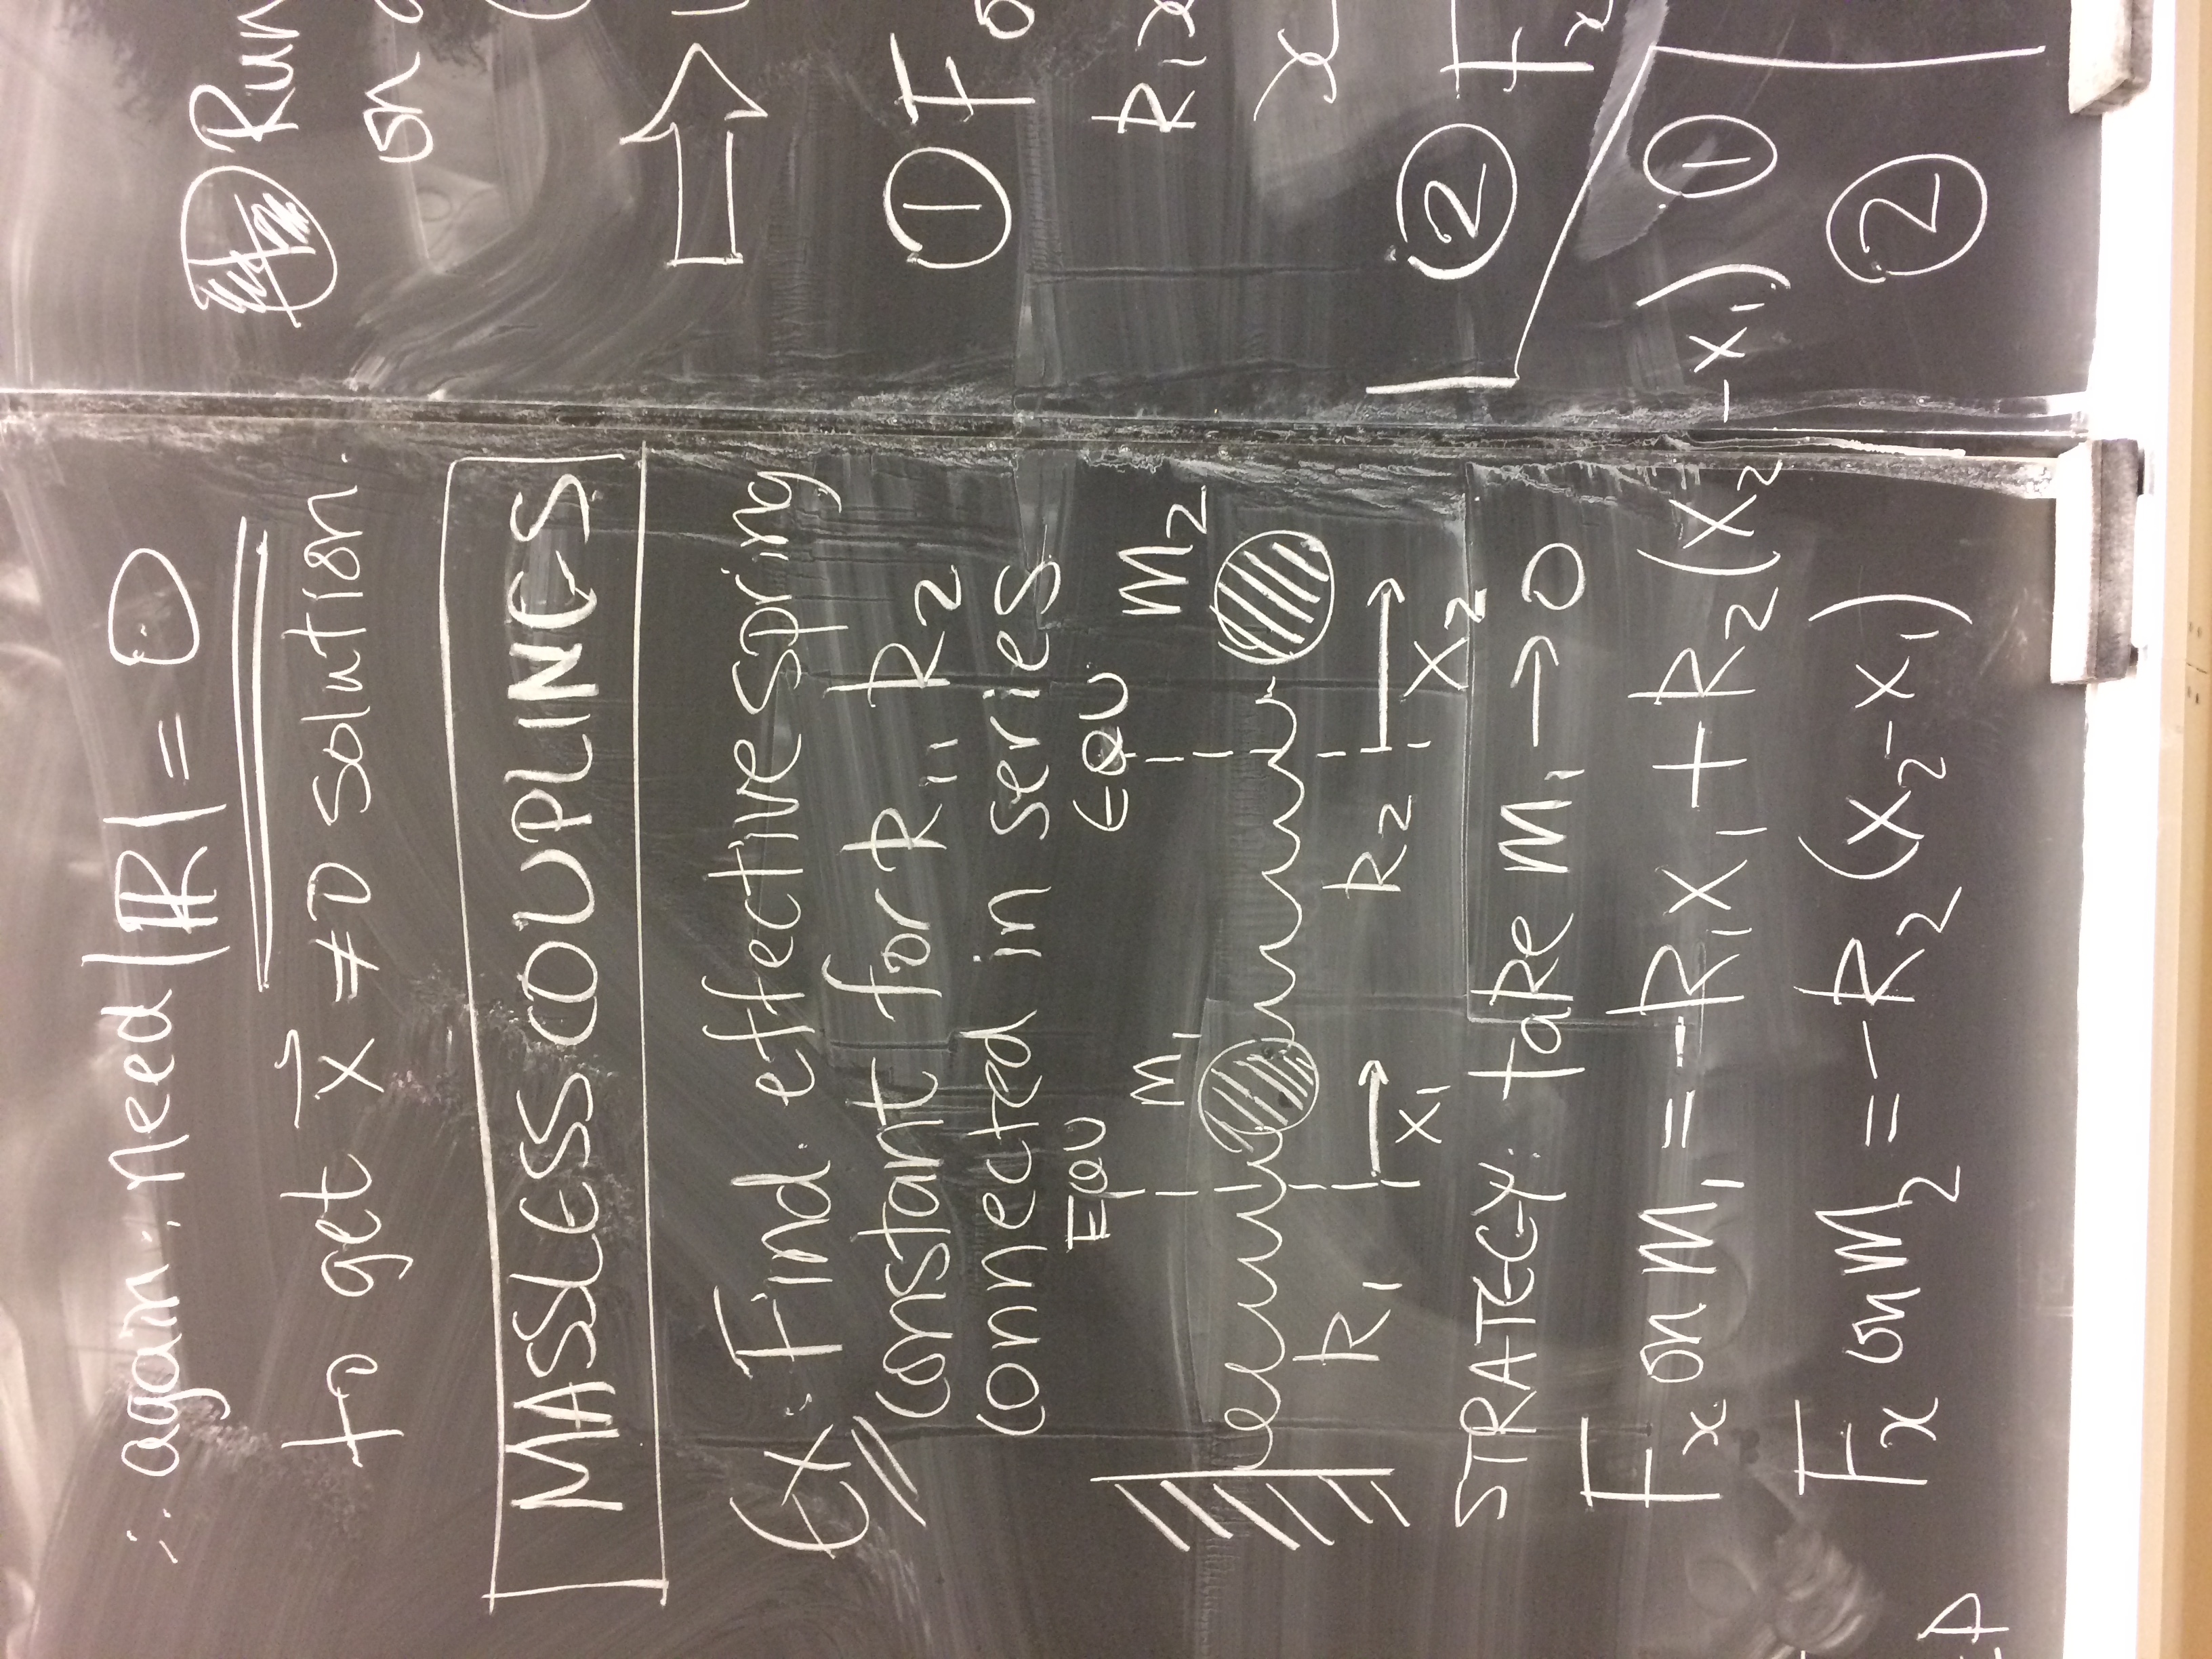 ∴ again: need |R| = 0
to get x⃗ ≠ 0 solution.
MASSLESS COUPLINGS
Ex: Find effective spring
constant for k₁, k₂
connected in series
EQU EQU
M₁ M₂
k₁ k₂
x₁ x₂
STRATEGY: take M₁ → 0
Fx on M₁ = -k₁x₁ + k₂(x₂ - x₁) ①
Fx on M₂ = -k₂(x₂-x₁) ②
Run
on
⇒
① F
k₁x
x
② Fx